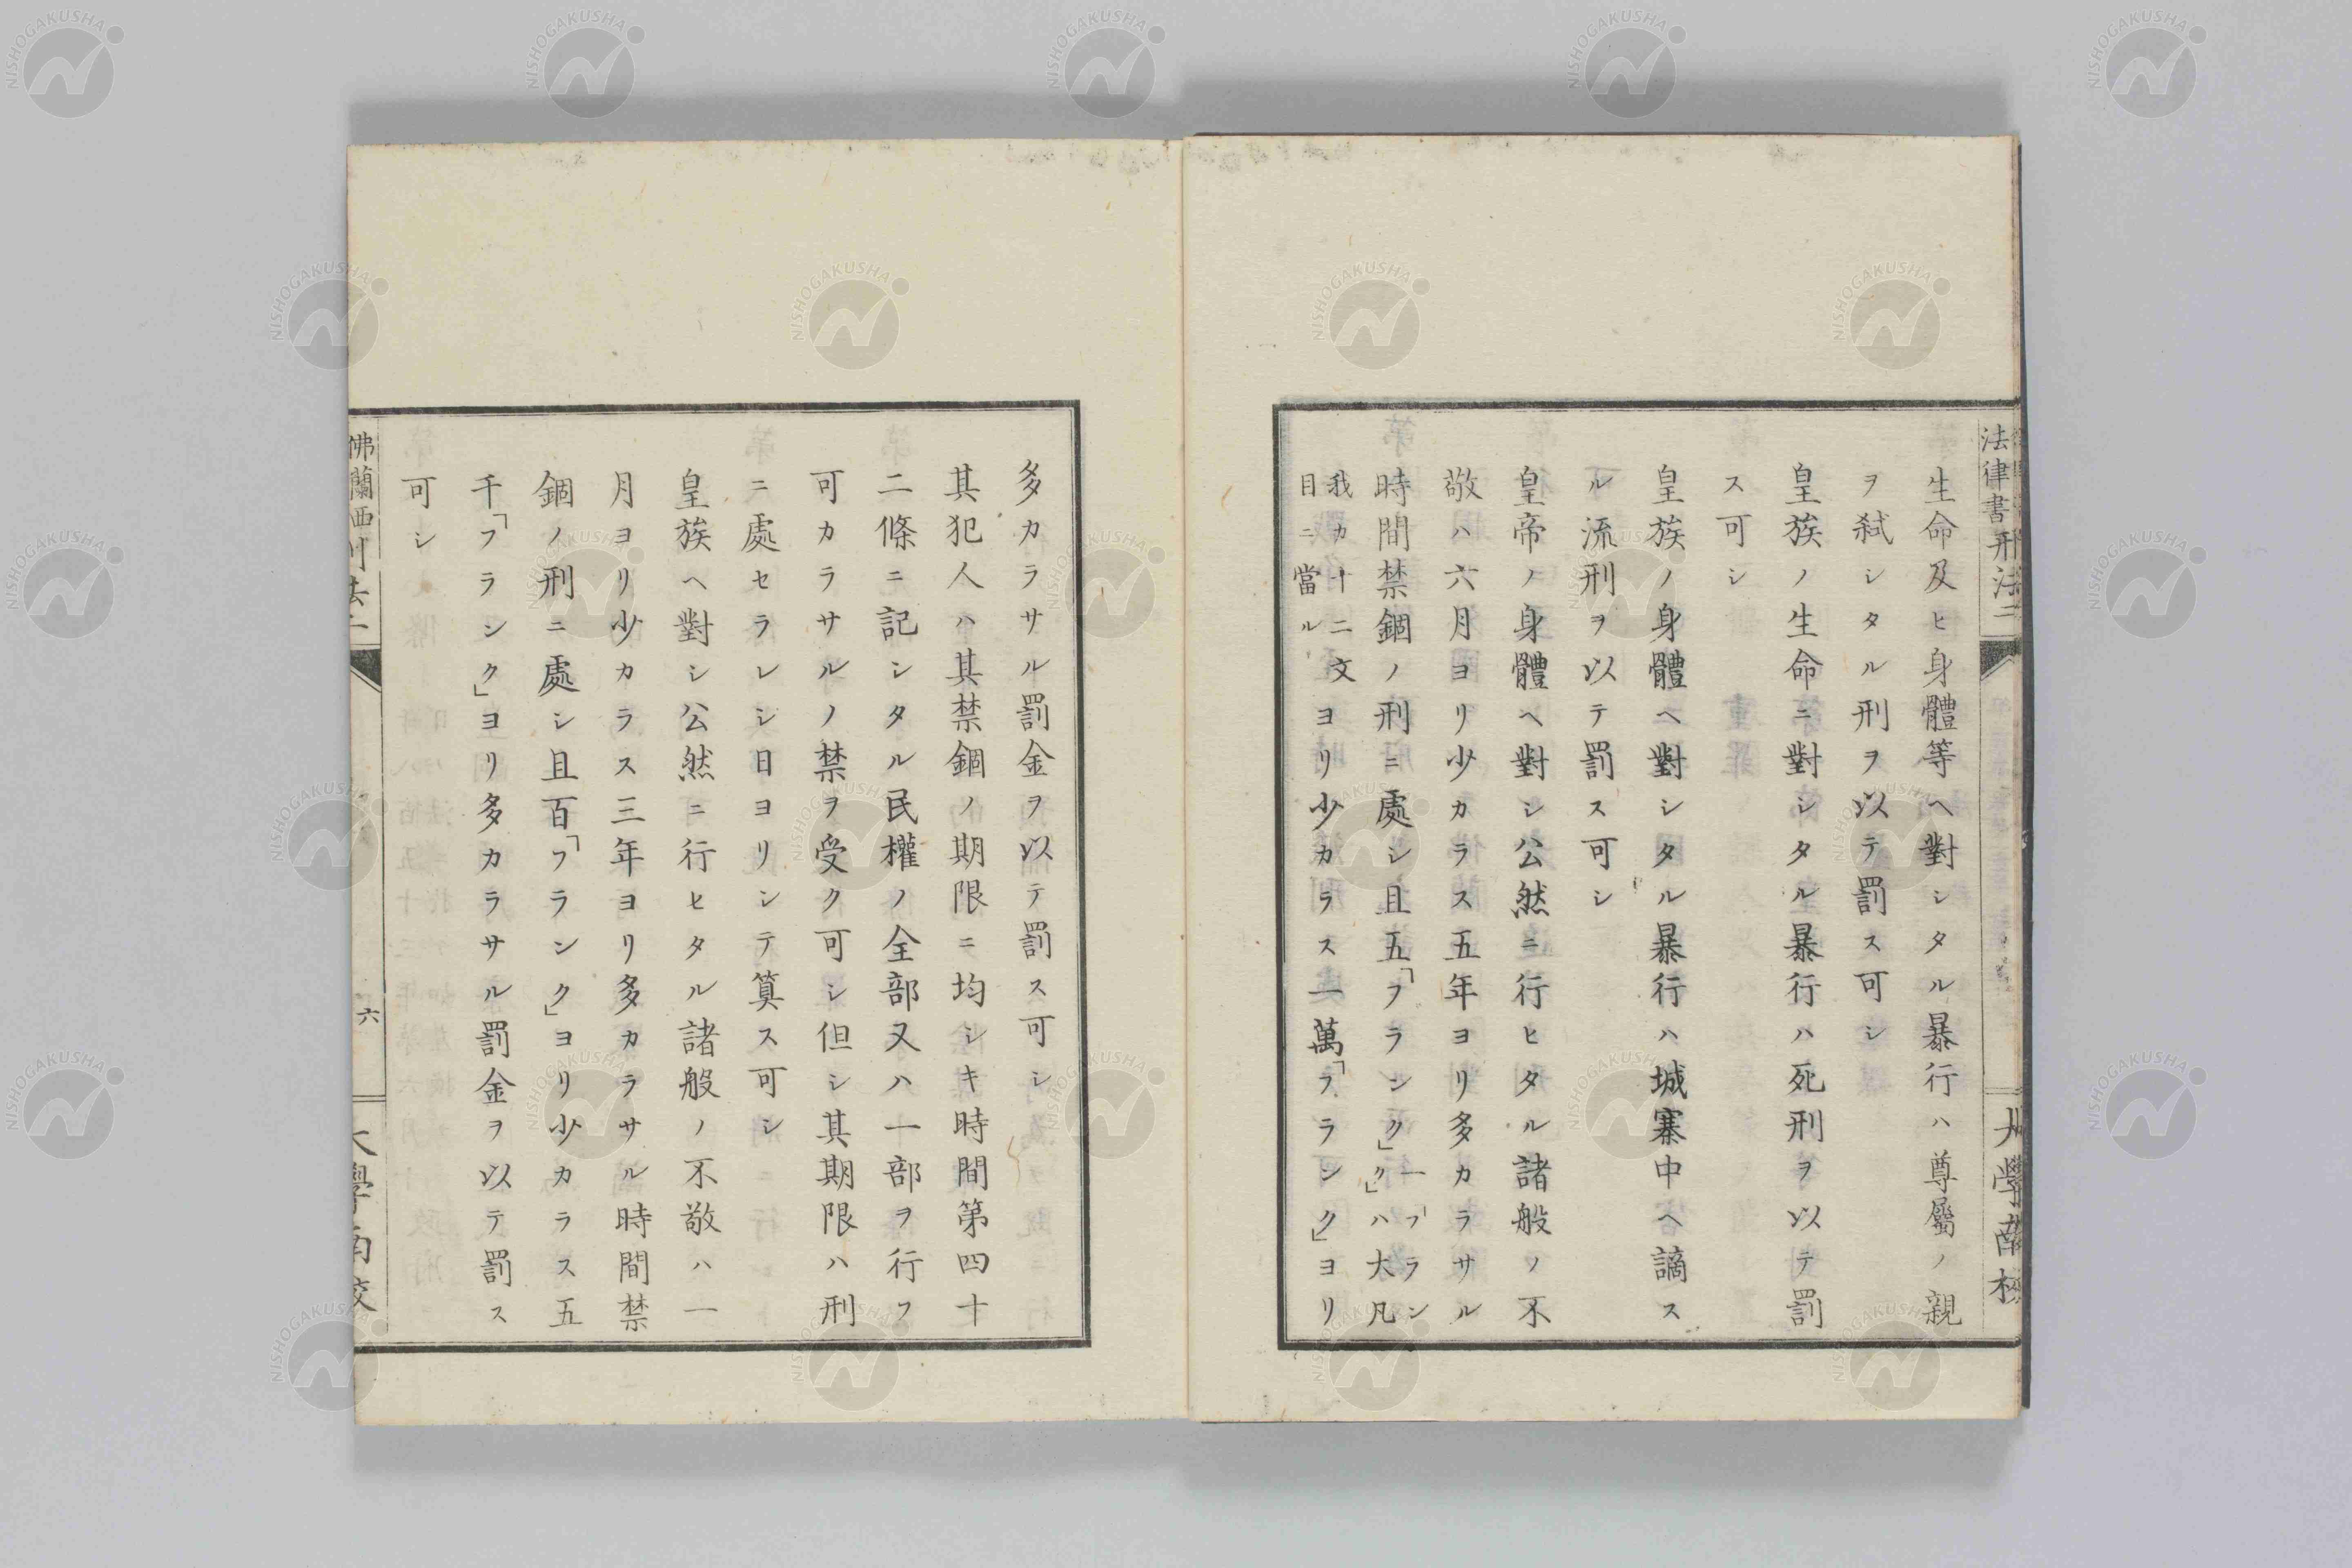 生命及ヒ身體等ヘ對シタル暴行ハ尊屬ノ親
ヲ弑シタル刑ヲ以テ罰ス可シ
皇族ノ生命ニ對シタル暴行ハ死刑ヲ以テ罰
ス可シ
皇族ノ身體ヘ對シタル暴行ハ城寨中ヘ謫ス
ル流刑ヲ以テ罰ス可シ
皇帝ノ身體ヘ對シ公然ニ行ヒタル諸般ノ不
敬ハ六月ヨリ少カラス五年ヨリ多カラサル
時間禁錮ノ刑ニ處シ且五「フランク」一「フランク」ハ大凡
我カ十二文目ニ當ルヨリ少カラス一萬「フランク」ヨリ
多カラサル罰金ヲ以テ罰ス可シ
其犯人ハ其禁錮ノ期限ニ均シキ時間第四十
二條ニ記シタル民權ノ全部又ハ一部ヲ行フ
可カラサルノ禁ヲ受ク可シ但シ其期限ハ刑
ニ處セラレシ日ヨリシテ算ス可シ
皇族ヘ對シ公然ニ行ヒタル諸般ノ不敬ハ一
月ヨリ少カラス三年ヨリ多カラサル時間禁
錮ノ刑ニ處シ且百「フランク」ヨリ少カラス五
千「フランク」ヨリ多カラサル罰金ヲ以テ罰ス
可シ
法律書刑法二
大學南校
佛蘭西刑法二
六
大學南校
NISHOGAKUSHA